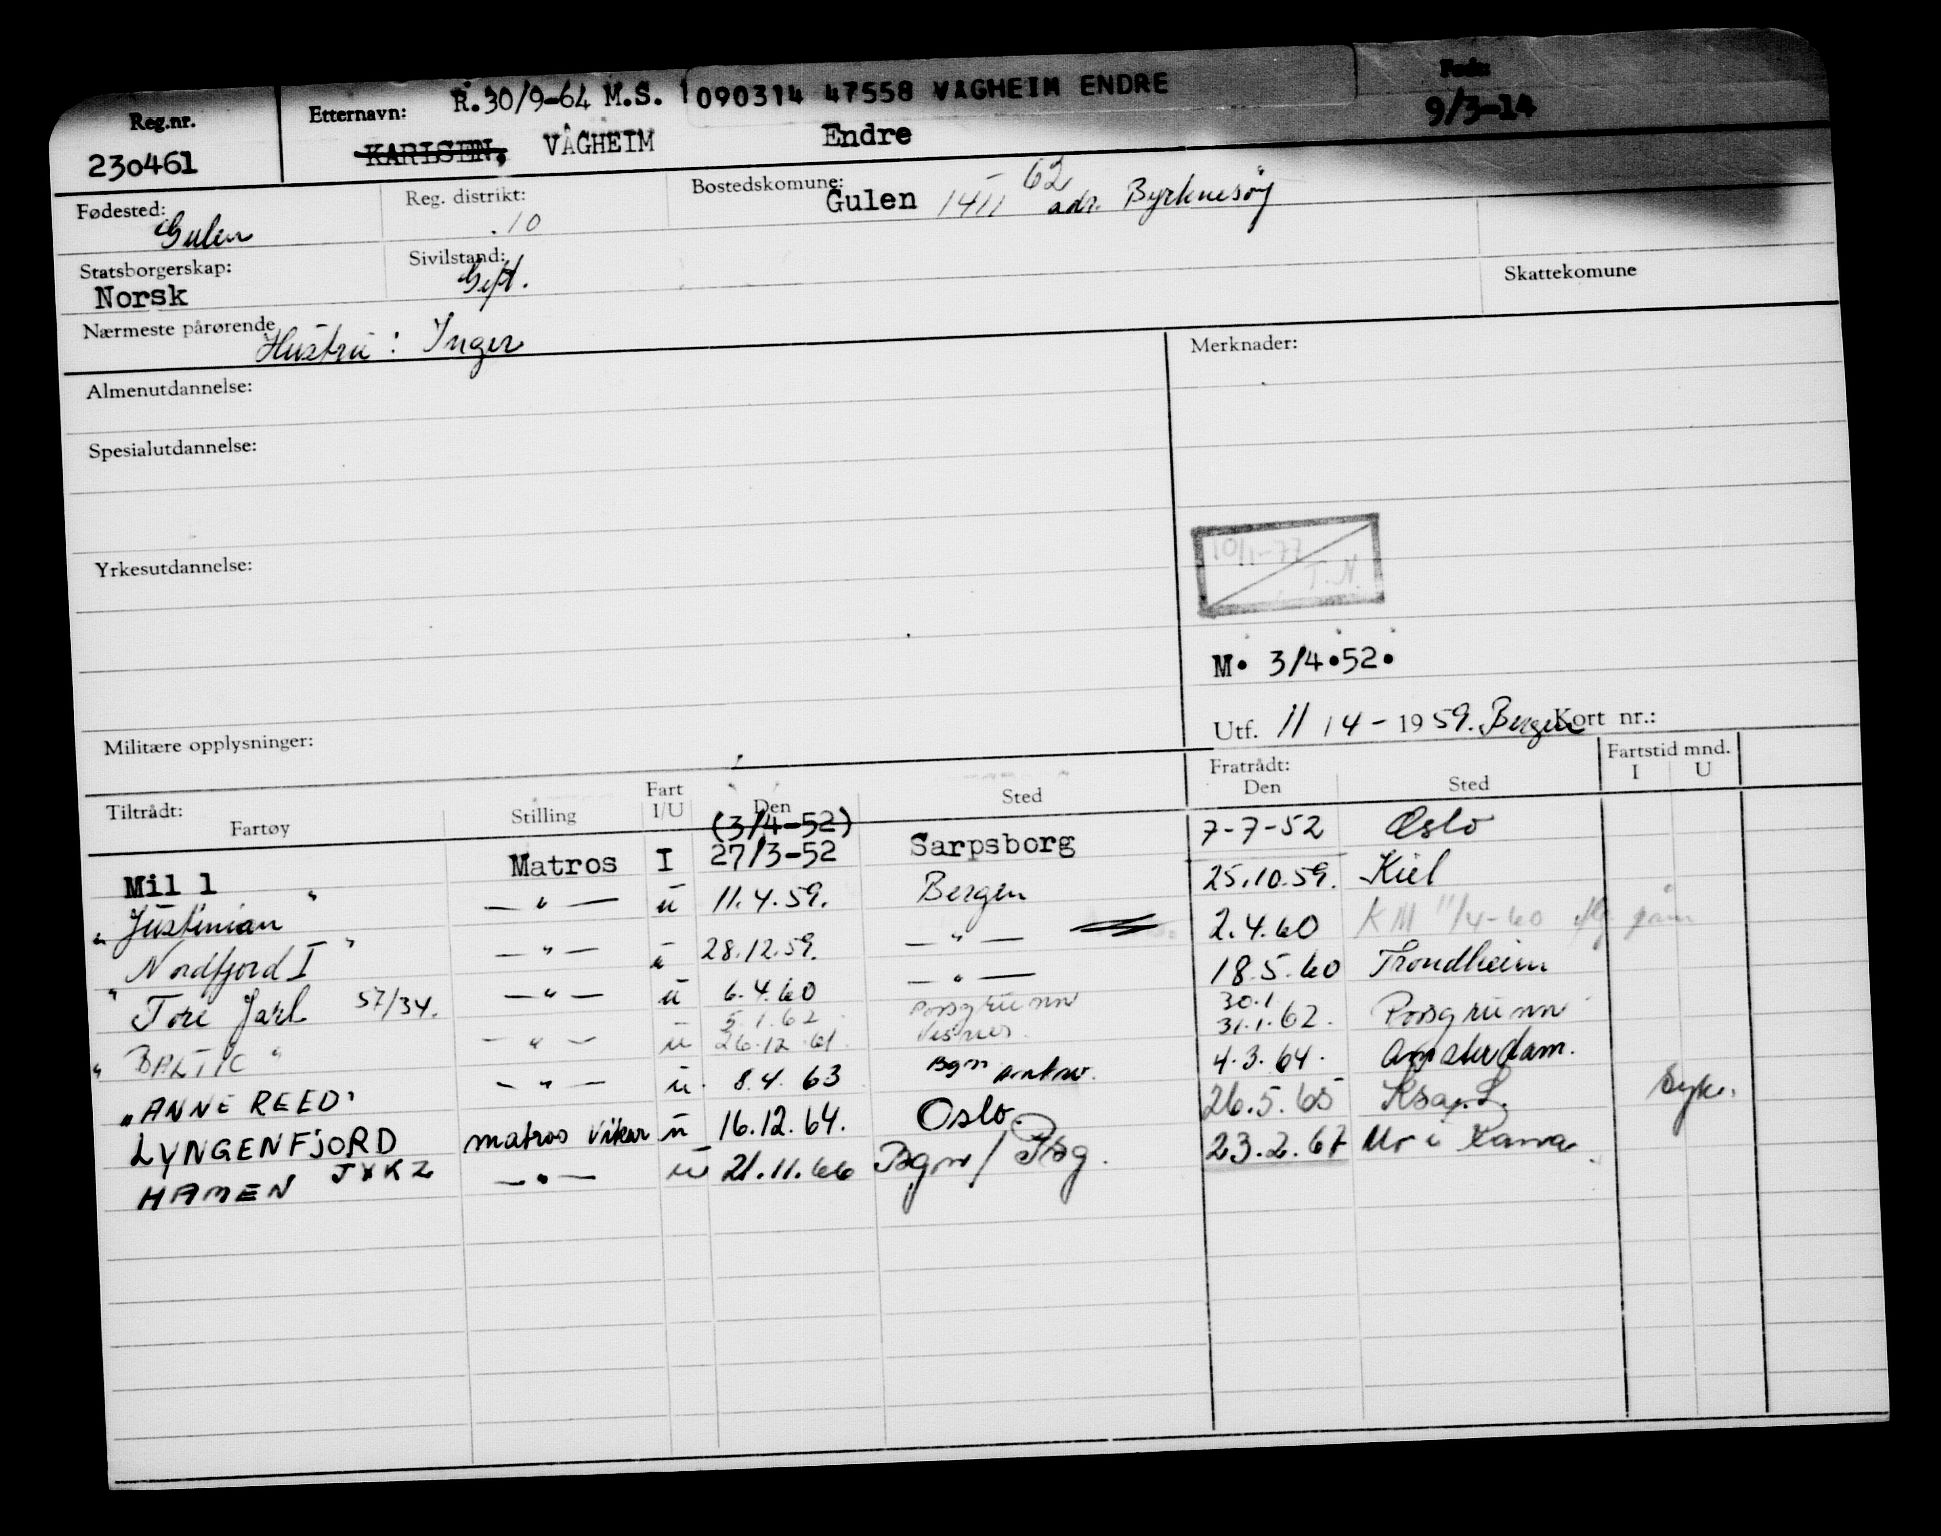 Reg.nr. Etternavn: R.30/9-64 M.S. 090314 47558 VÅGHEIM ENDRE Født:
230461 KARLSEN, VÅGHEIM Endre 9/3-14
Fødested: Gulen Reg. distrikt: 10 Bostedskomune: Gulen 1411 62 adr. Byrknesøy
Statsborgerskap: Norsk Sivilstand: Gift. Skattekomune
Nærmeste pårørende Hustru: Inger Merknader:
Almenutdannelse:
Spesialutdannelse:
10/1-77 T.N.
Yrkesutdannelse:
M. 3/4.52.
Militære opplysninger: Utf. 11/4-1959. Bergen Kort nr.:
Tiltrådt: Fartøy Stilling Fart I/U Den Sted Fratrådt: Den Sted Fartstid mnd. I U
(3/4-52)
Mil 1 Matros I 27/3-52 Sarpsborg 7-7-52 Oslo
" Justinian " — " — u 11.4.59. Bergen 25.10.59. Kiel
" Nordfjord I " — " — u 28.12.59. — " — 2.4.60 KM 11/4-60
Tore Jarl 57/34. — " — u 6.4.60 — " — 18.5.60 Trondheim
5.1.62 Porsgrunn 30.1
" BALTIC " — " — u 26.12.61. Visnes. 31.1.62. Porsgrunn
"ANNE REED" — " — u. 8.4.63 Bgn 4.3.64. Amsterdam.
LYNGENFJORD matros vikar u 16.12.64. Oslo. 26.5.65 Syk.
HAMEN JXKZ — " — u 21.11.66 Bgn/Psg. 23.2.67